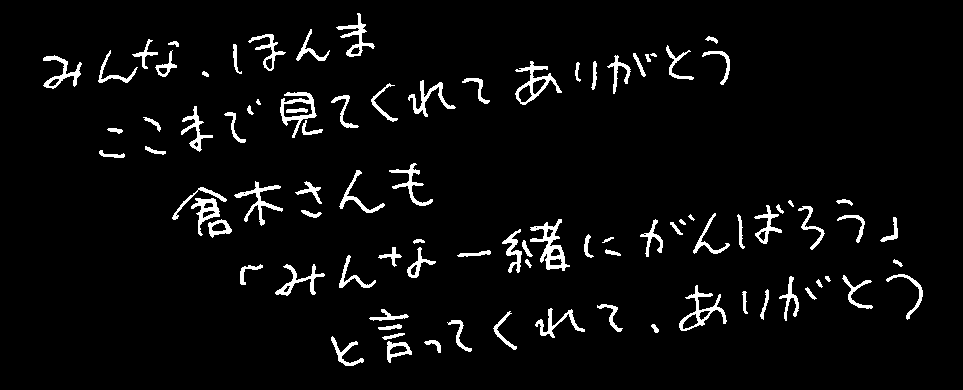 みんな、ほんま
ここまで見てくれてありがとう
倉木さんも
「みんな一緒にがんばろう」
と言ってくれて、ありがとう